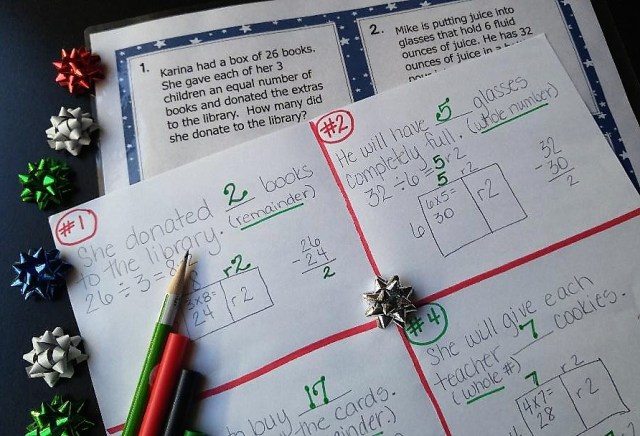 1. Karina had a box of 26 books.
She gave each of her 3
children an equal number of
books and donated the extras
to the library. How many did
she donate to the library?
2. Mike is putting juice into
glasses that hold 6 fluid
ounces of juice. He has 32
ounces of juice in a
#1
She donated 2 books
to the library. (remainder)
26 ÷ 3 = 8
8 r2
3x8=
24
r2
26
- 24
2
#2
He will have 5 glasses
completely full. (whole number)
32 ÷ 6 = 5 r2
5 r2
6
6x5=
30
r2
32
- 30
2
buy 17
the cards.
#4
She will give each
teacher 7 cookies.
(whole #)
7 r2
4x7=
28
r2